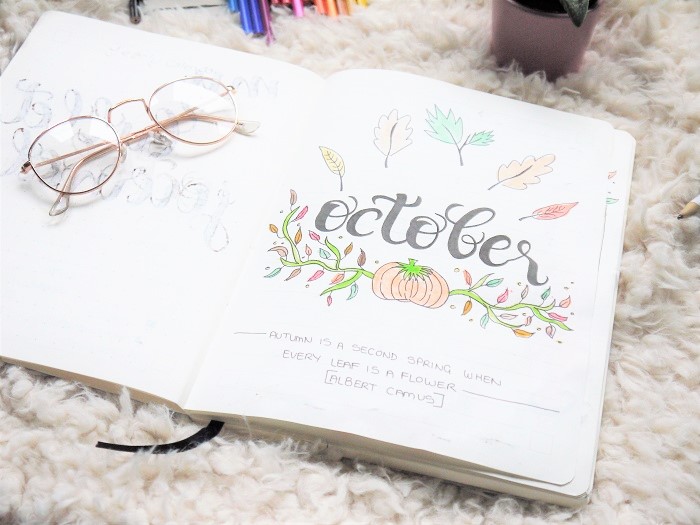 october
AUTUMN IS A SECOND SPRING WHEN
EVERY LEAF IS A FLOWER
[ALBERT CAMUS]